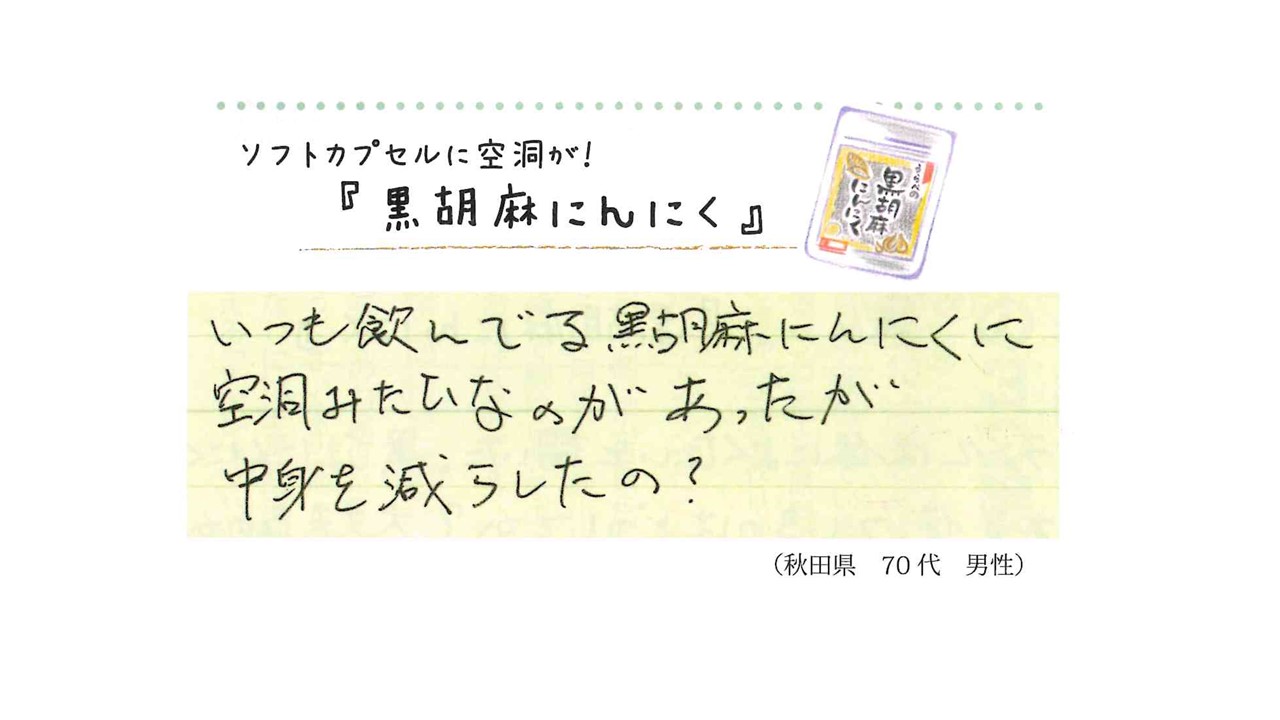 ソフトカプセルに空洞が!
『黒胡麻にんにく』
黒胡麻
にんにく
いつも飲んでる黒胡麻にんにくに
空洞みたいなのがあったが
中身を減らしたの?
(秋田県 70代 男性)